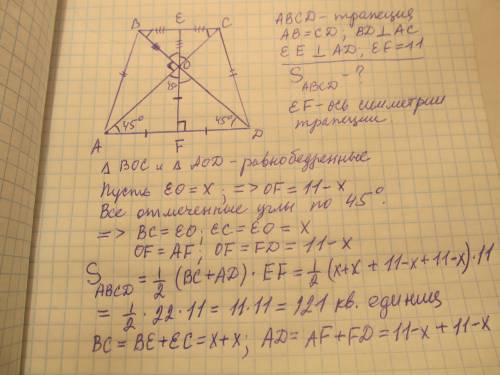 B E C
O
45°
45° 45°
A F D
ABCD - трапеция
AB = CD; BD ⊥ AC
EE ⊥ AD; EF = 11
S ABCD - ?
EF - ось симметрии
трапеции
△ BOC и △ AOD - равнобедренные
Пусть EO = x; => OF = 11 - x
Все отмеченные углы по 45°.
=> BC = EO; EC = EO = x
OF = AF; OF = FD = 11 - x
S ABCD = 1/2 (BC + AD) · EF = 1/2 (x + x + 11 - x + 11 - x) · 11
= 1/2 · 22 · 11 = 11 · 11 = 121 кв. единиц
BC = BE + EC = x + x; AD = AF + FD = 11 - x + 11 - x